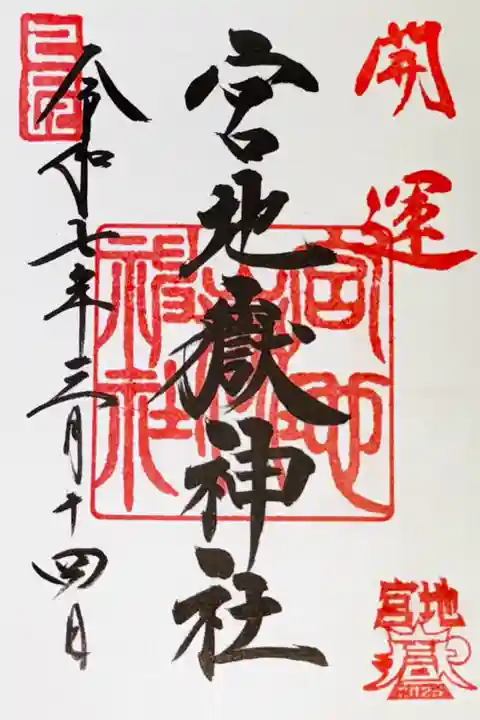 開運
宮地嶽神社
令和七年三月十四日
宮地嶽神社
宮地嶽